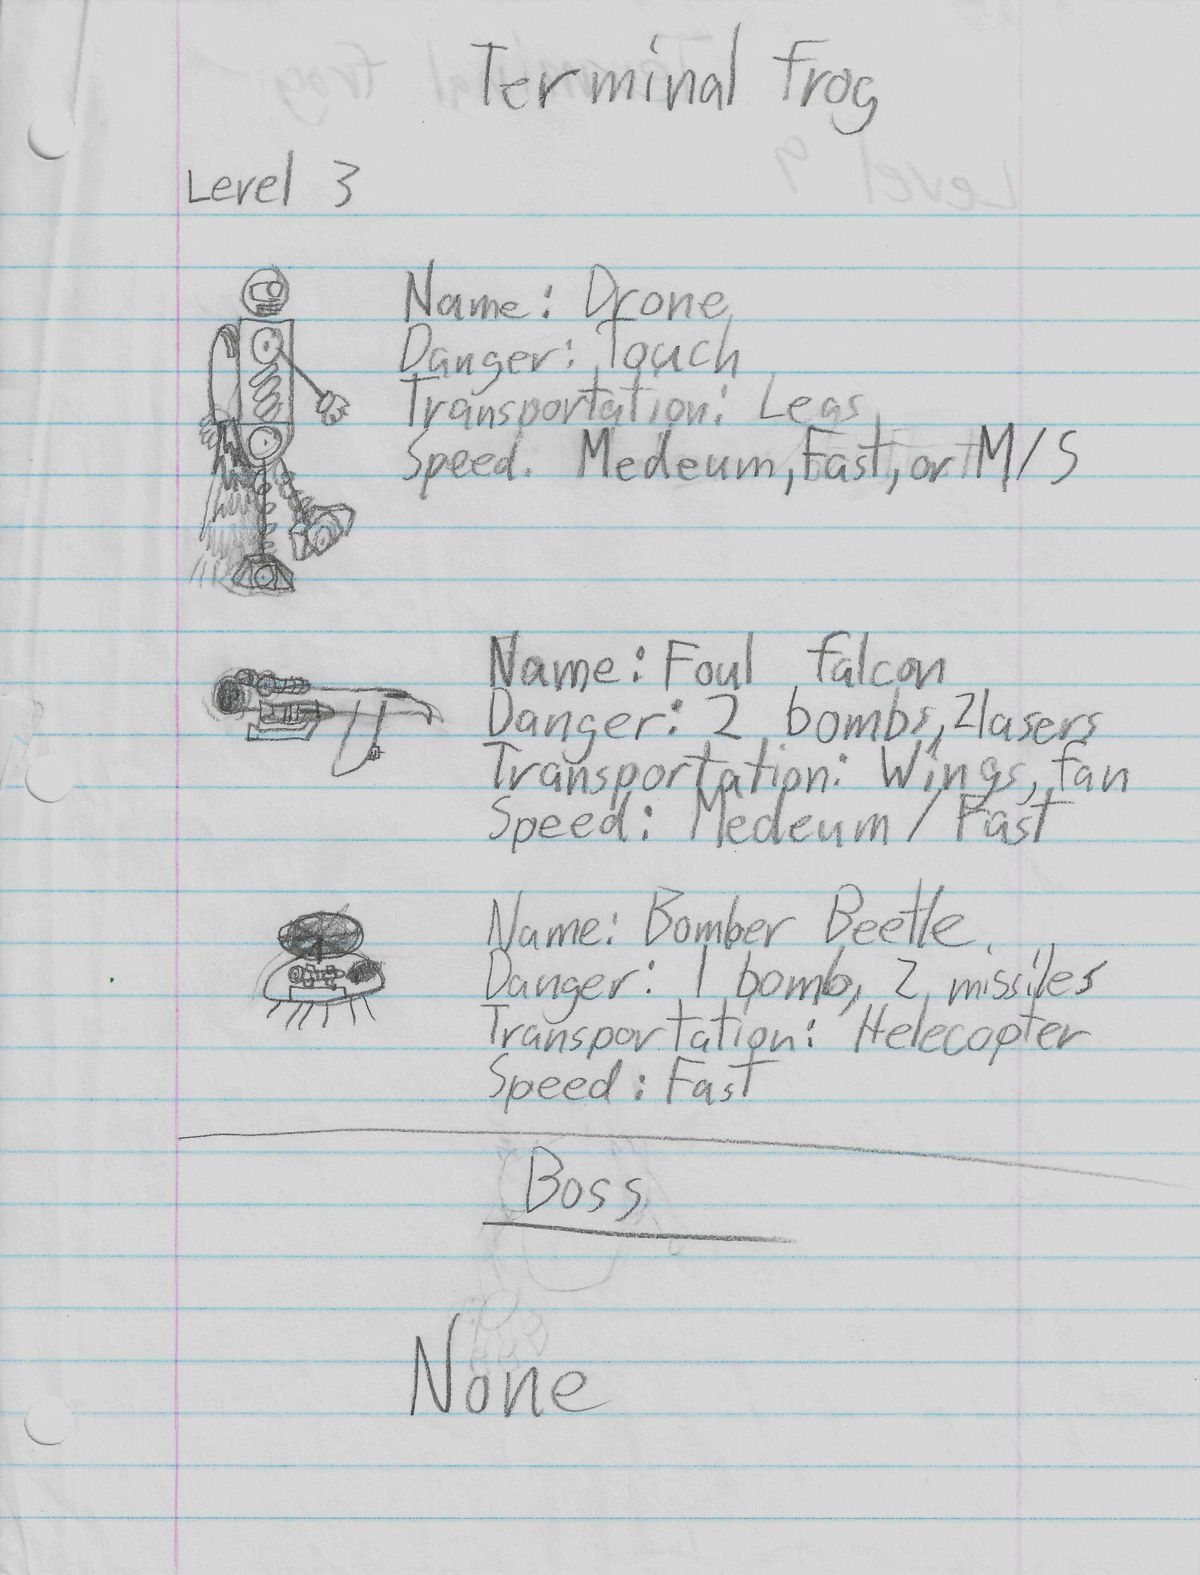 Terminal frog
Level 3
Name: Drone
Danger: Touch
Transportation: Legs
Speed. Medeum, Fast, or M/S
Name: Foul falcon
Danger: 2 bombs, 2 lasers
Transportation: Wings, fan
Speed: Medeum / Fast
Name: Bomber Beetle
Danger: 1 bomb, 2 missiles
Transportation: Helecopter
Speed: Fast
Boss
None